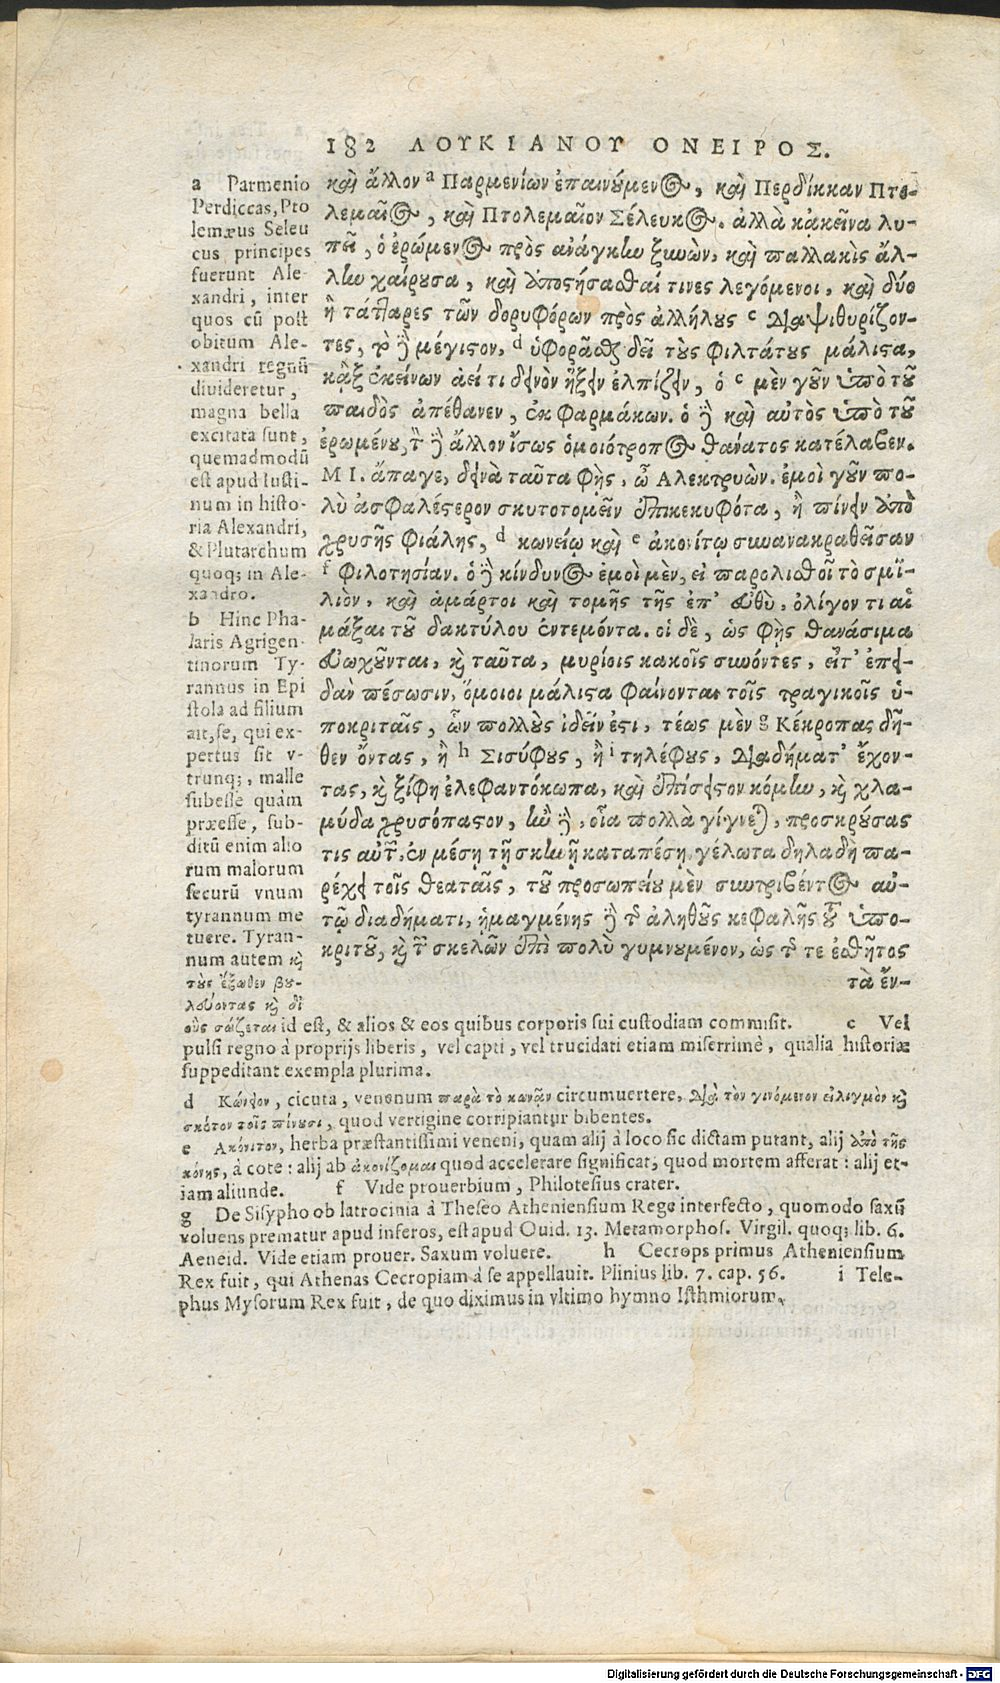 182 ΛΟΥΚΙΑΝΟΥ ΟΝΕΙΡΟΣ.
καὶ ἄλλον a Παρμενίων ἐπαινούμενος, καὶ Περδίκκαν Πτο-
λεμαῖος, καὶ Πτολεμαῖον Σέλευκος. ἀλλὰ κἀκεῖνα λυ-
πεῖ, ὁ ἐρώμενος πρὸς ἀνάγκην ξυνὼν, καὶ παλλακὶς ἄλ-
λῳ χαίρουσα, καὶ ἀποστήσασθαί τινες λεγόμενοι, καὶ δύο
ἢ τάτταρες τῶν δορυφόρων πρὸς ἀλλήλους c διαψιθυρίζον-
τες, τὸ δὲ μέγιστον, d ὑφορᾶσθαι δεῖ τοὺς φιλτάτους μάλιστα,
κἀξ ἐκείνων ἀεί τι δεινὸν ἥξειν ἐλπίζειν, ὁ c μὲν γοῦν ὑπὸ τοῦ
παιδὸς ἀπέθανεν, ἐκ φαρμάκων. ὁ δὲ καὶ αὐτὸς ὑπὸ τοῦ
ἐρωμένου, τὸν δὲ ἄλλον ἴσως ὁμοιότροπος θάνατος κατέλαβεν.
ΜΙ. ἄπαγε, δεινὰ ταῦτα φῂς, ὦ Ἀλεκτρυών. ἐμοὶ γοῦν πο-
λὺ ἀσφαλέστερον σκυτοτομεῖν ἐπικεκυφότα, ἢ πίνειν ἀπὸ
χρυσῆς φιάλης, d κωνείῳ καὶ e ἀκονίτῳ συνανακραθεῖσαν
f φιλοτησίαν. ὁ δὲ κίνδυνος ἐμοὶ μὲν, εἰ παρολισθοῖ τὸ σμί-
λιὸν, καὶ ἁμάρτοι καὶ τομῆς τῆς ἐπ' εὐθὺ, ὀλίγον τι αἱ
μάξαι τοῦ δακτύλου ἐντεμόντα. οἱ δὲ, ὡς φῂς θανάσιμα
εὐωχοῦνται, καὶ ταῦτα, μυρίοις κακοῖς συνόντες, εἶτ' ἐπει-
δὰν πέσωσιν, ὅμοιοι μάλιστα φαίνονται τοῖς τραγικοῖς ὑ-
ποκριταῖς, ὧν πολλοὺς ἰδεῖν ἔστι, τέως μὲν g Κέκροπας δῆ-
θεν ὄντας, ἢ h Σισύφους, ἢ i τηλέφους, διαδήματ' ἔχον-
τας, καὶ ξίφη ἐλεφαντόκωπα, καὶ ἐπίσειστον κόμην, καὶ χλα-
μύδα χρυσόπαστον, ἢν δὲ, οἷα πολλὰ γίγνεται, προσκρούσας
τις αὐτῶν, ἐν μέσῃ τῇ σκηνῇ καταπέσῃ, γέλωτα δηλαδὴ πα-
ρέχει τοῖς θεαταῖς, τοῦ προσωπείου μὲν συντριβέντος αὐ-
τῷ διαδήματι, ᾑμαγμένης δὲ τῆς ἀληθοῦς κεφαλῆς τοῦ ὑπο-
κριτοῦ, καὶ τῶν σκελῶν ἐπὶ πολὺ γυμνουμένον, ὡς τῆς τε ἐσθῆτος
τὰ ἔν-
a Parmenio
Perdiccas, Pto
lemæus Seleu
cus principes
fuerunt Ale-
xandri, inter
quos cū post
obitum Ale-
xandri regnū
divideretur,
magna bella
excitata sunt,
quemadmodū
est apud Iusti-
num in histo-
ria Alexandri,
& Plutarchum
quoq; in Ale-
xandro.
b Hinc Pha-
laris Agrigen-
tinorum Ty-
rannus in Epi
stola ad filium
ait, se, qui ex-
pertus sit v-
trunq;, malle
subesse quàm
præesse, sub-
ditū enim alio
rum malorum
securū vnum
tyrannum me
tuere. Tyran-
num autem καὶ
τοὺς ἔξωθεν βου-
λεύοντας καὶ δι'
οὓς σώζεται id est, & alios & eos quibus corporis sui custodiam commisit. c Vel
pulsi regno à proprijs liberis, vel capti, vel trucidati etiam miserrimè, qualia historiæ
suppeditant exempla plurima.
d Κώνειον, cicuta, venenum παρὰ τὸ κωνᾷν circumuertere, διὰ τὸν γινόμενον εἰλιγμὸν καὶ
σκότον τοῖς πίνουσι, quod vertigine corripiantur bibentes.
e Ακόνιτον, herba præstantissimi veneni, quam alij à loco sic dictam putant, alij ἀπὸ τῆς
κόνης, à cote: alij ab ἀκονίζομαι quod accelerare significat, quod mortem afferat: alij et-
iam aliunde. f Vide prouerbium, Philotesius crater.
g De Sisypho ob latrocinia à Theseo Atheniensium Rege interfecto, quomodo saxū
voluens prematur apud inferos, est apud Ouid. 13. Metamorphos. Virgil. quoq; lib. 6.
Aeneid. Vide etiam prouer. Saxum voluere. h Cecrops primus Atheniensium
Rex fuit, qui Athenas Cecropiam à se appellauit. Plinius lib. 7. cap. 56. i Tele-
phus Mysorum Rex fuit, de quo diximus in vltimo hymno Isthmiorum.
Digitalisierung gefördert durch die Deutsche Forschungsgemeinschaft - DFG